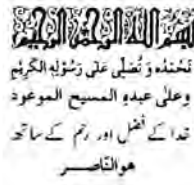 بسم الله الرحمن الرحيم
نحمده و نصلی علی رسوله الکریم
وعلی عبده المسیح الموعود
خدا کے فضل اور رحم کے ساتھ
هوالناصر